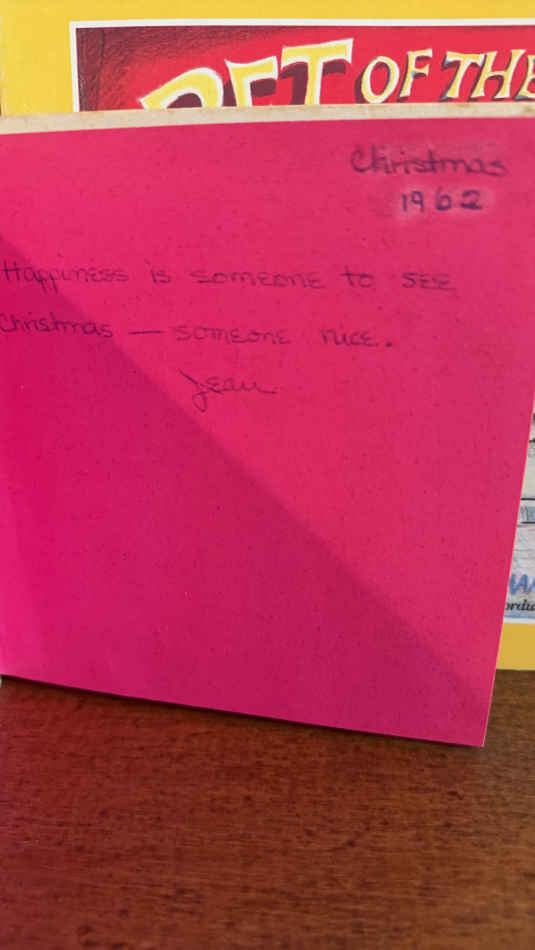 OF THE
Christmas
1962
Happiness is someone to see
Christmas — someone nice.
Jean